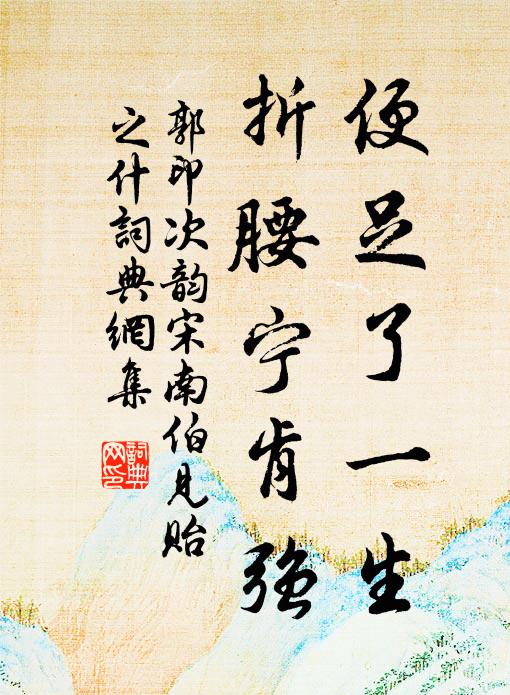 便足了一生
折腰宁肯强
郭印次韵宋南伯见贻
之什詞典網集
詞典
网印